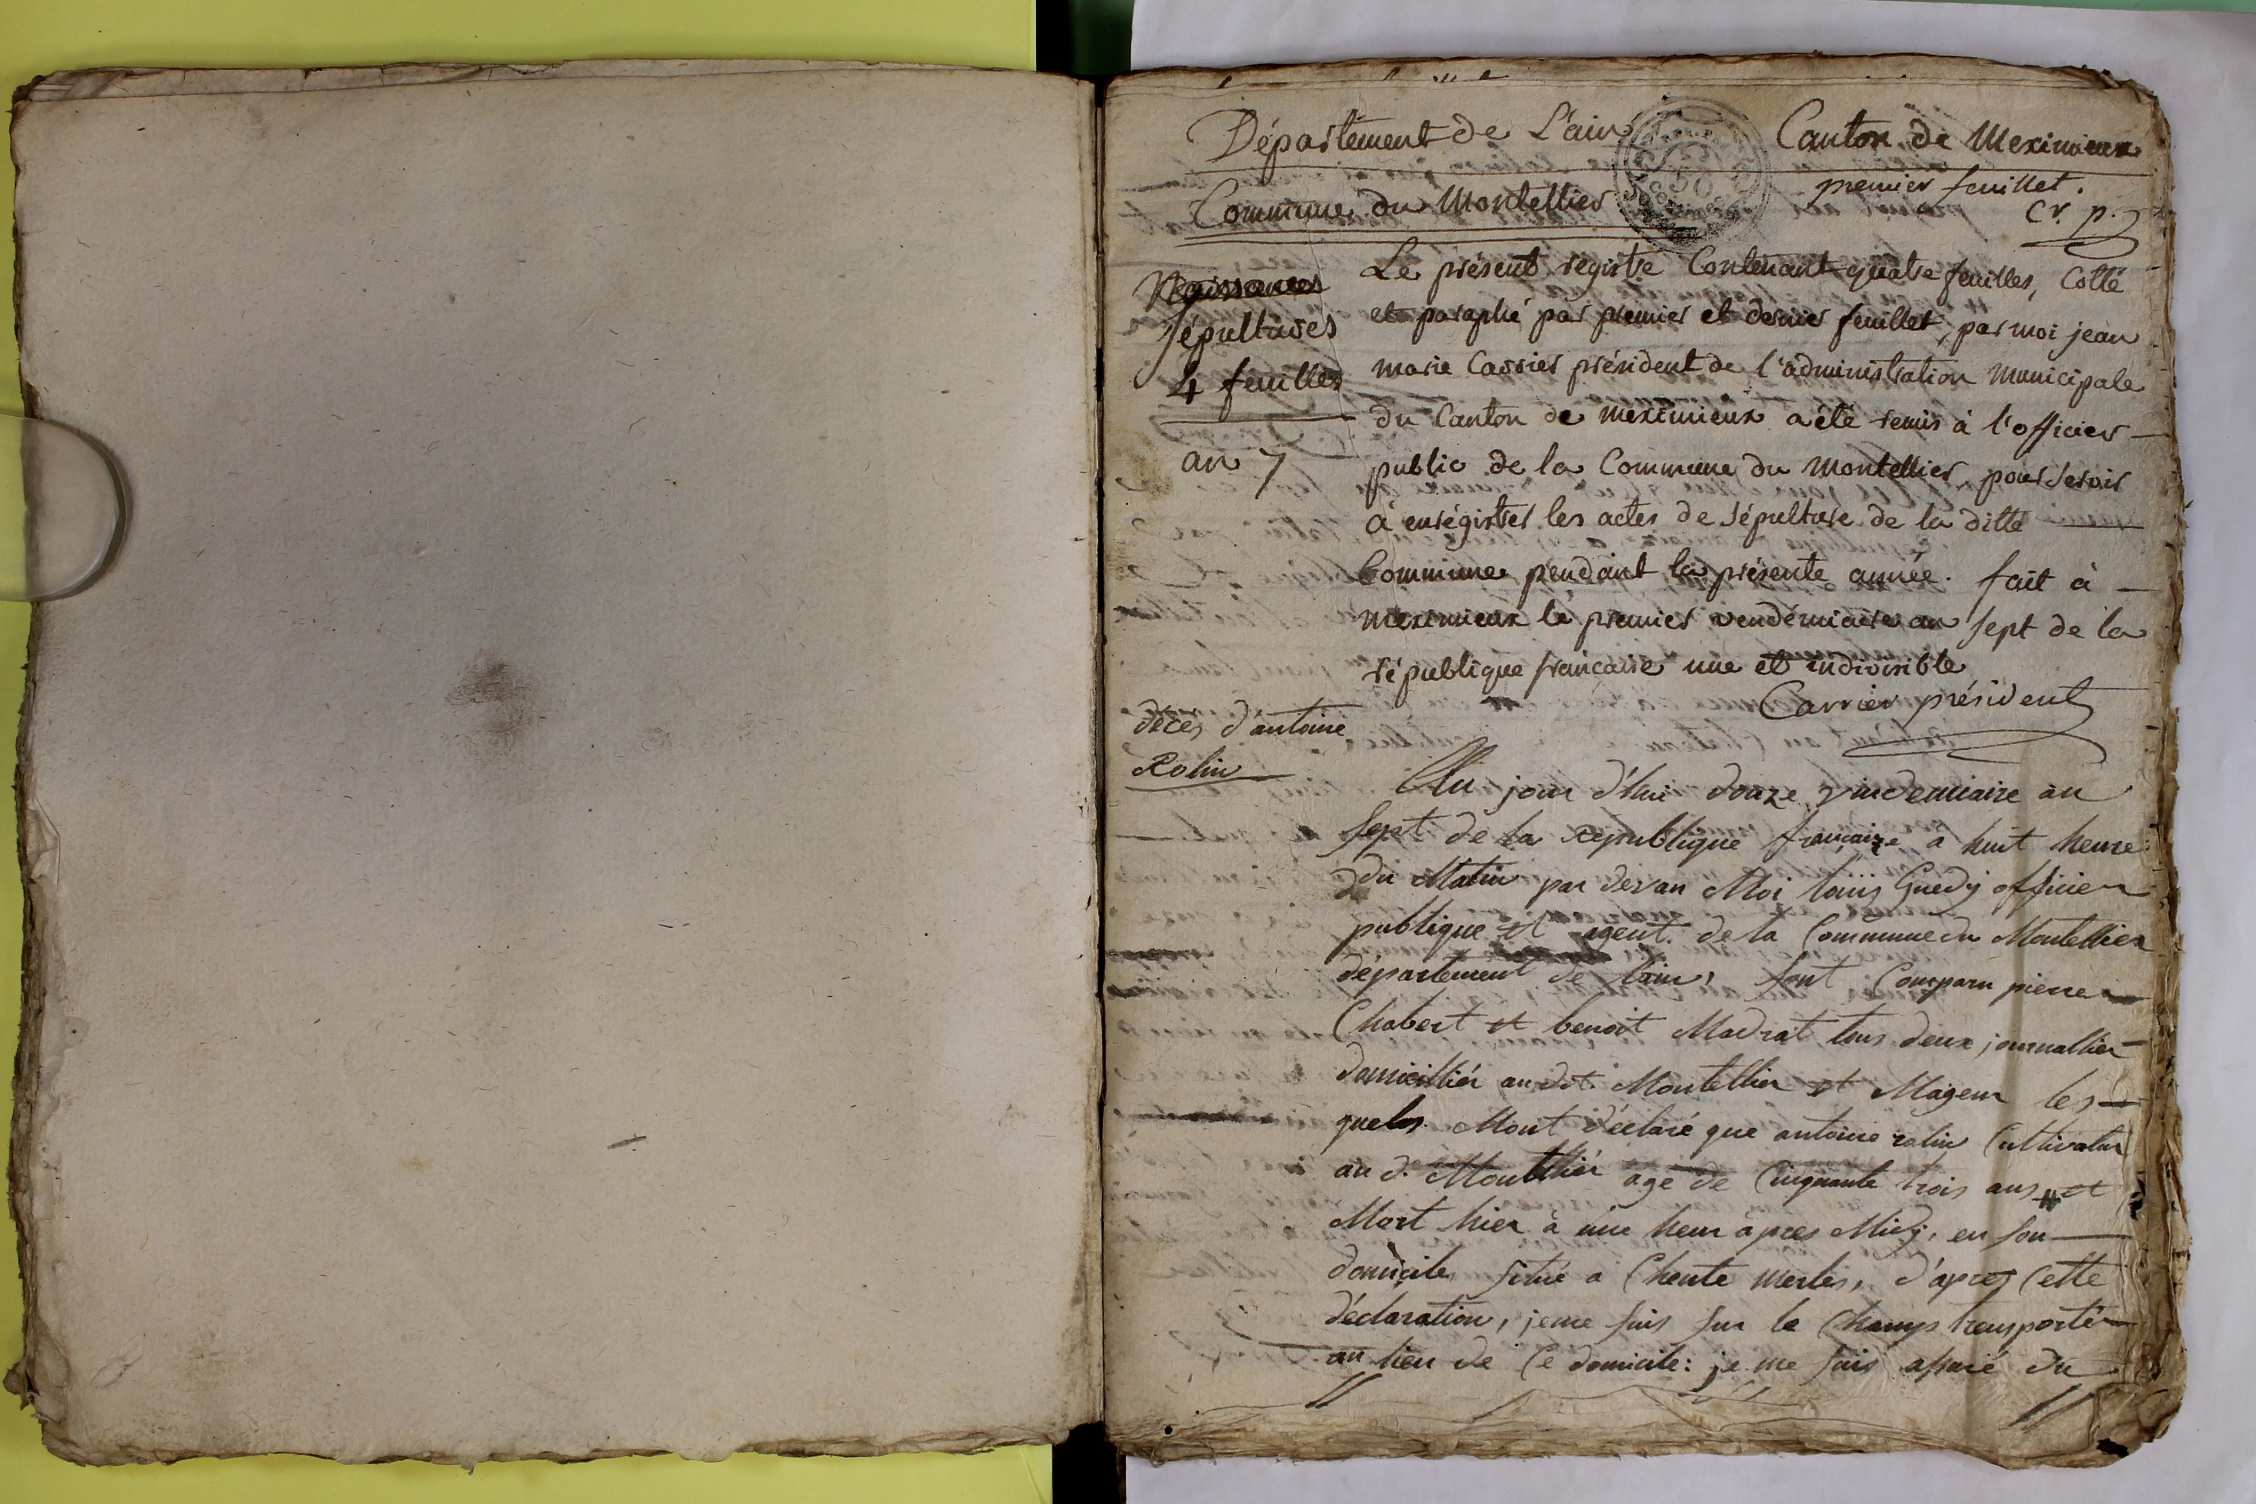 Département de L'ain
Canton de Meximieux
premier feuillet.
Commune du Montellier
Cr. p.
Naissances
sépultures
4 feuilles
an 7
Le présent registre Contenant quatre feuilles, Cotté
et paraphé par premier et dernier feuillet, par moi jean
marie Carrier président de l'administration municipale
du Canton de meximieux a été remis à l'officier
public de la Commune du Montellier pour servir
à enrégistrer les actes de sépulture de la ditte
Commune pendant la présente année. fait à
meximieux le premier vendémiaire an sept de la
république française une et indivisible
Carrier président
décès d'antoine
Rolin
Au jour d'hui douze vindemiaire an
sept de la Republique française a huit heure
du Matin par devan Moi loüis Guedy officier
publique et agent de la Commune du Montellier
département de lain, sont Comparu pierre
Chabert et benoit Madrat tous deux journallier
domicilliér au dt Montellier et Mageur les
quelas Mont déclaré que antoine rolin Cultivatur
au d. Montellier agé de Cinquante trois ans et
Mort hier à une heur àpres Midj, en son
domicile situé a Chente merles, d'apres Cette
déclaration, je me suis sur le Champs transporté
au lieu de Ce domicile: je me suis assuré du